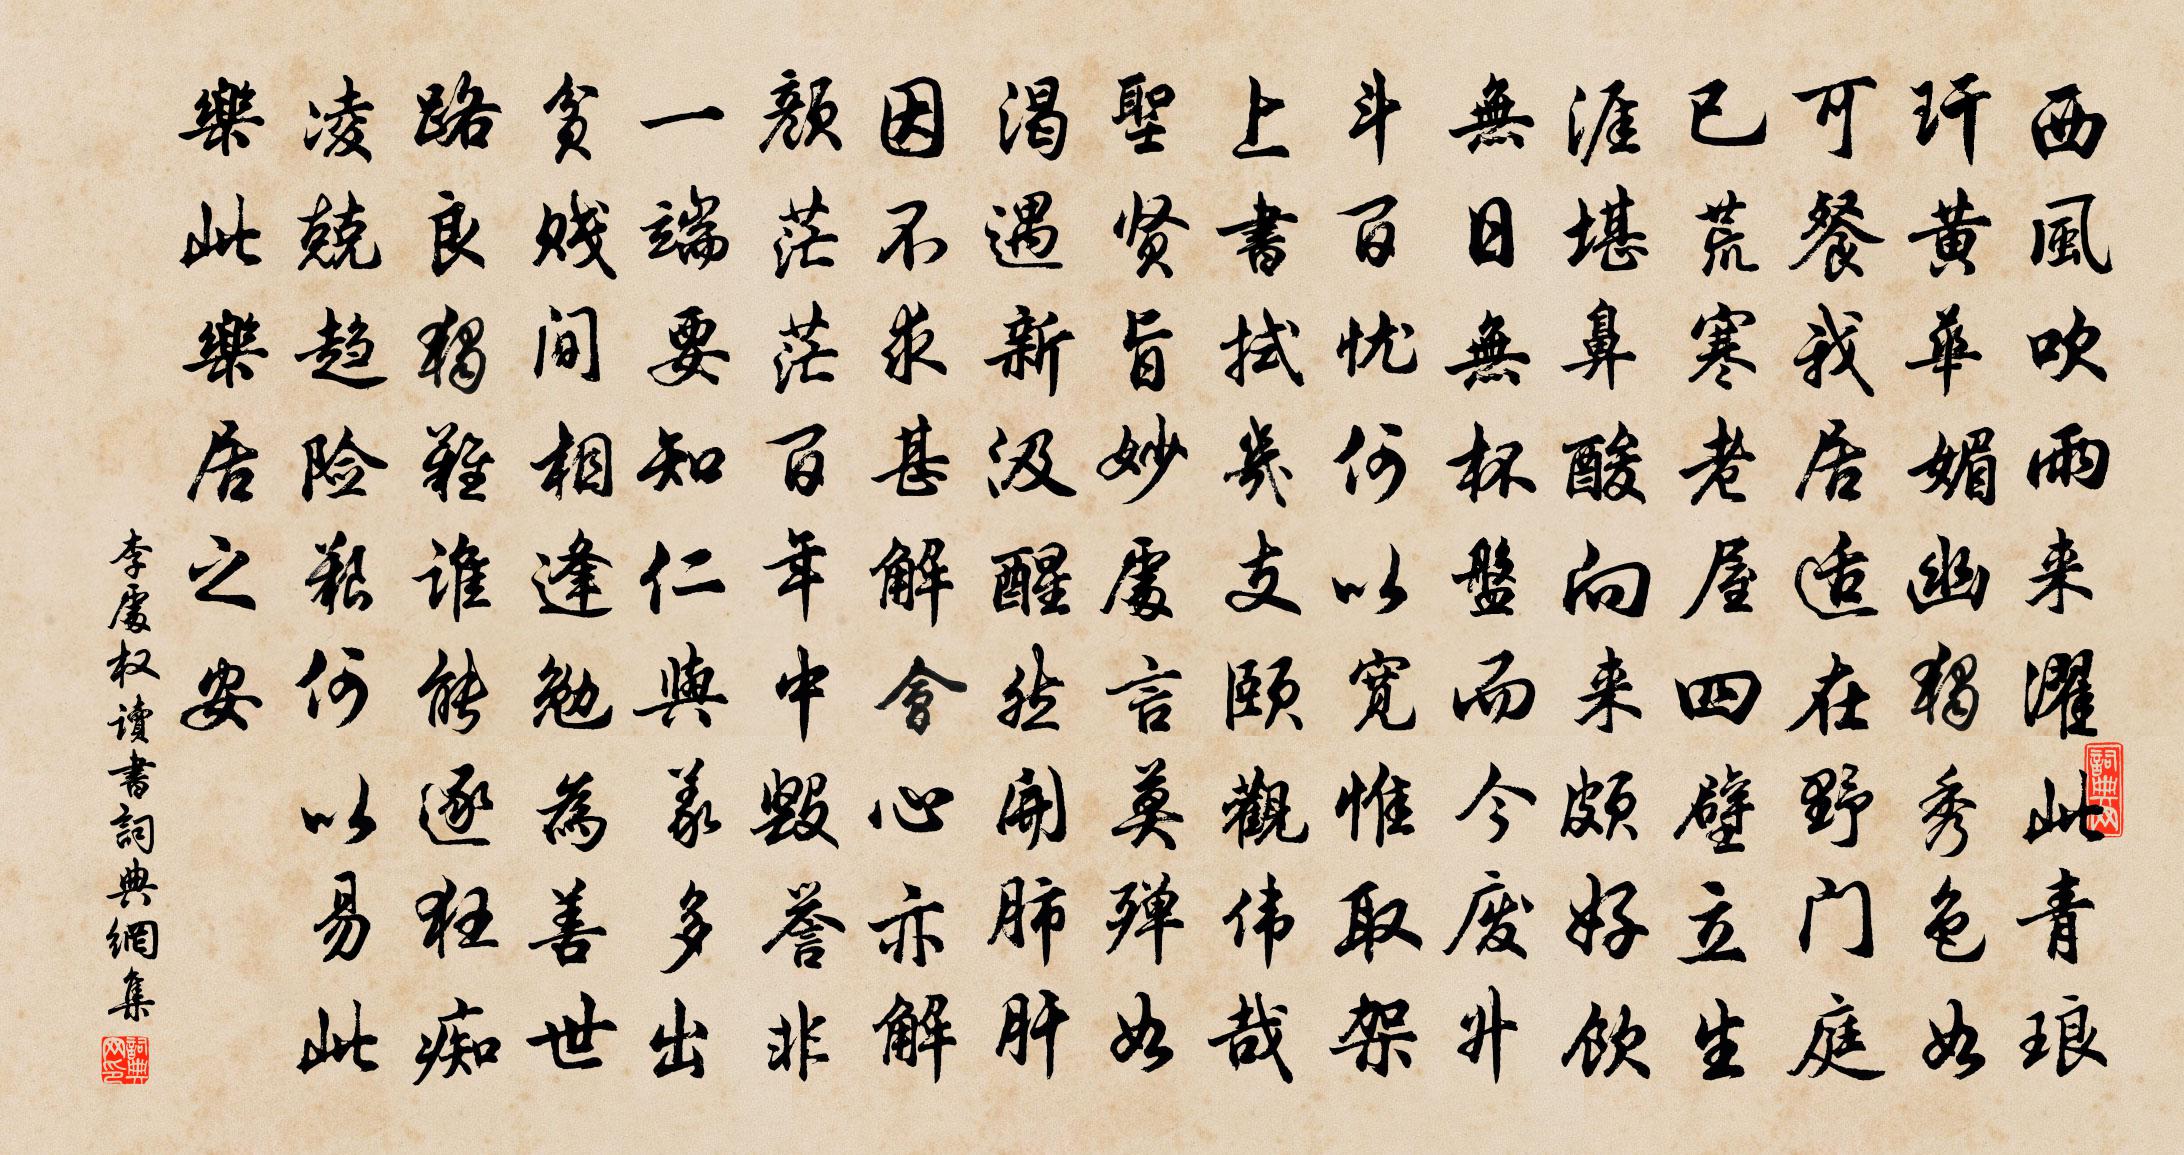 西風吹雨来濯此青琅
玕黄華媚幽獨秀色如
可餐我居适在野门庭
已荒寒老屋四壁立生
涯堪鼻酸向来颇好飲
無日無杯盤而今废升
斗百忧何以宽惟取架
上書拭幾支颐觀伟哉
聖贤旨妙處言莫殫如
渴遇新汲醒然開肺肝
因不求甚解會心亦解
颜茫茫百年中毀誉非
一端要知仁與義多出
贫贱间相逢勉為善世
路良獨難谁能逐狂痴
凌兢趋险艰何以易此
樂此樂居之安
李處权讀書詞典網集
詞典网
詞典网印